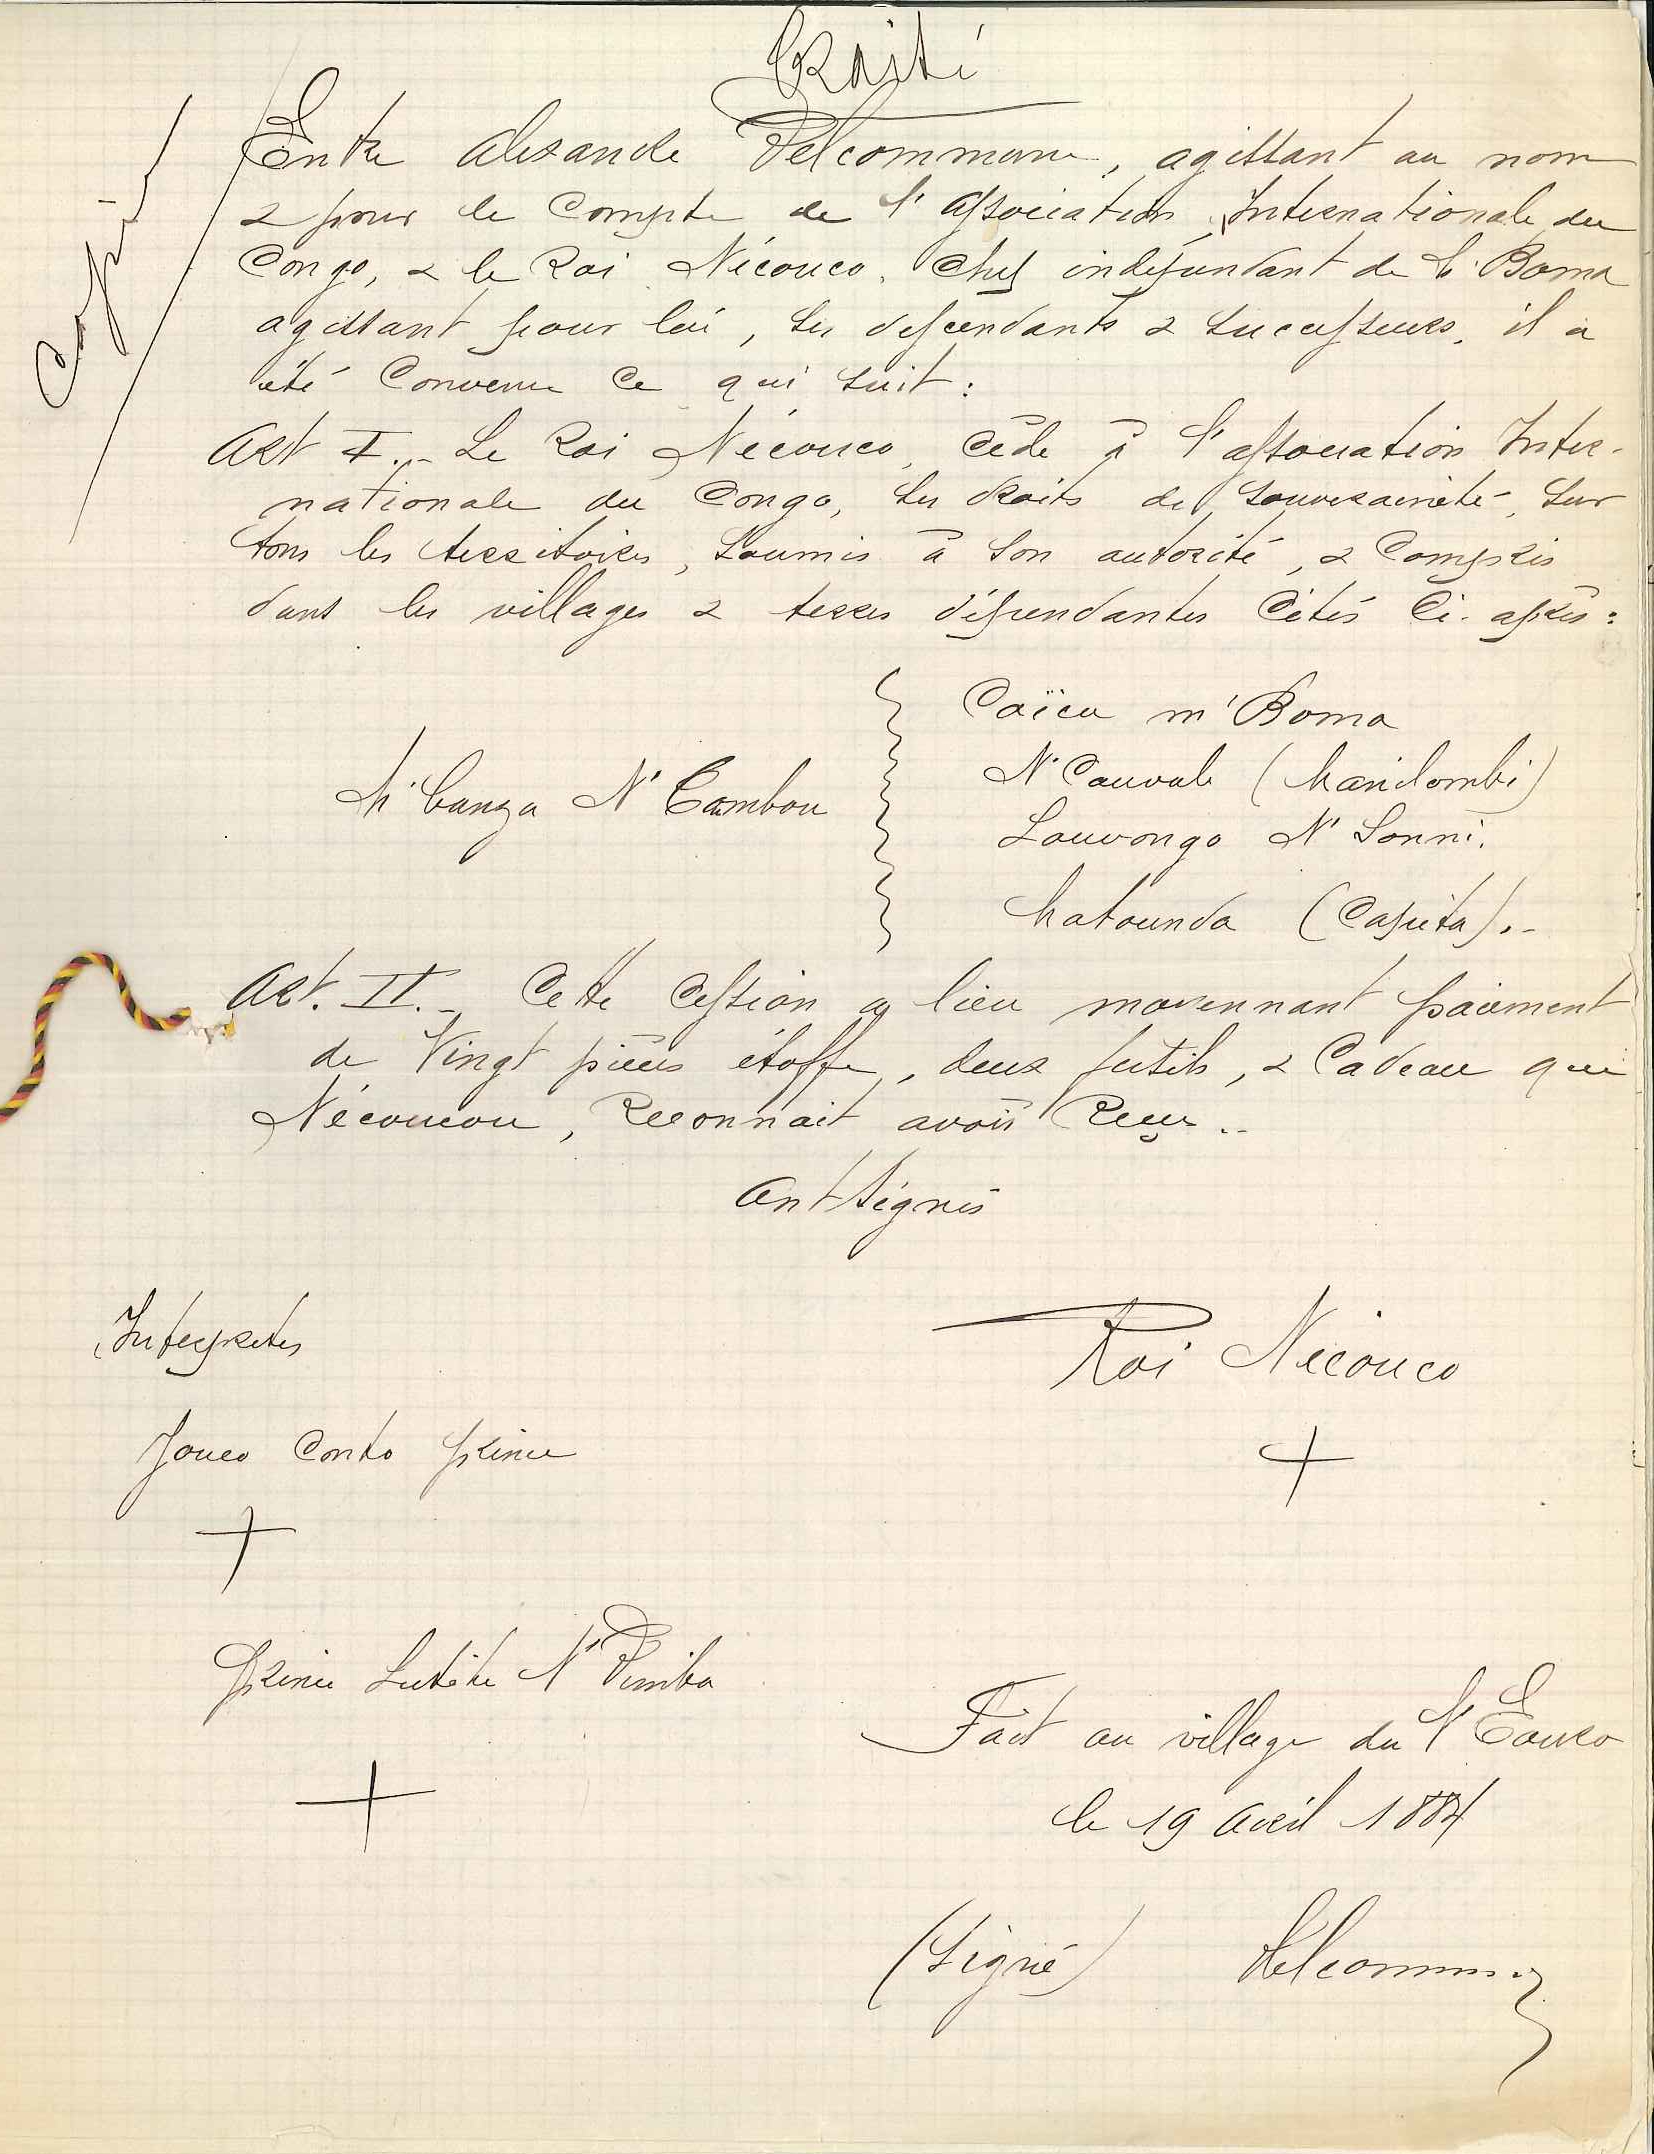 Traité
Copie
Entre Alexandre Delcommune, agissant au nom
& pour le Compte de l'Association Internationale du
Congo, & le Roi Nécouco, Chef indépendant de M'Boma
agissant pour lui, ses descendants & successeurs, il a
été Convenu Ce qui suit :
Art I.- Le Roi Nécouco, Cède à l'association Inter-
nationale du Congo, ses droits de souveraineté, sur
tous les territoires, soumis à son autorité, & Compris
dans les villages & terres dépendantes Cités Ci-après :
Caïcu m'Boma
N'Cauvale (Maidombi)
M'banza N'Cambou
Louvongo N'Sonni.
Matounda (Capita).-
Art. II.- Cette Cession a lieu moyennant paiement
de Vingt pièces étoffe, deux fusils, & Cadeau que
Nécoucou, Reconnait avoir Reçu..
Ont signés
Interpretes
Roi Nécouco
+
Jouco Conto prince
+
Prince Lutété N'Pemba
+
Fait au village du N'
le 19 Avril 1884
(signé) Delcommune